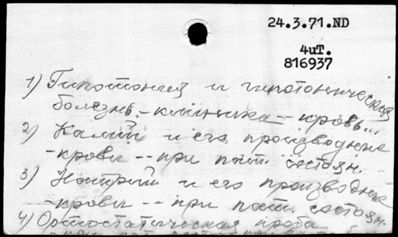 24.3.71.ND
4иТ.
816937
1) Гипотония и гипотоническая
болезнь - клиника - кровь...
2) Калий и его производные
- крови -- при пат. состоян.
3) Натрий и его производные
- крови -- при пат. состоян.
4) Ортостатическая проба